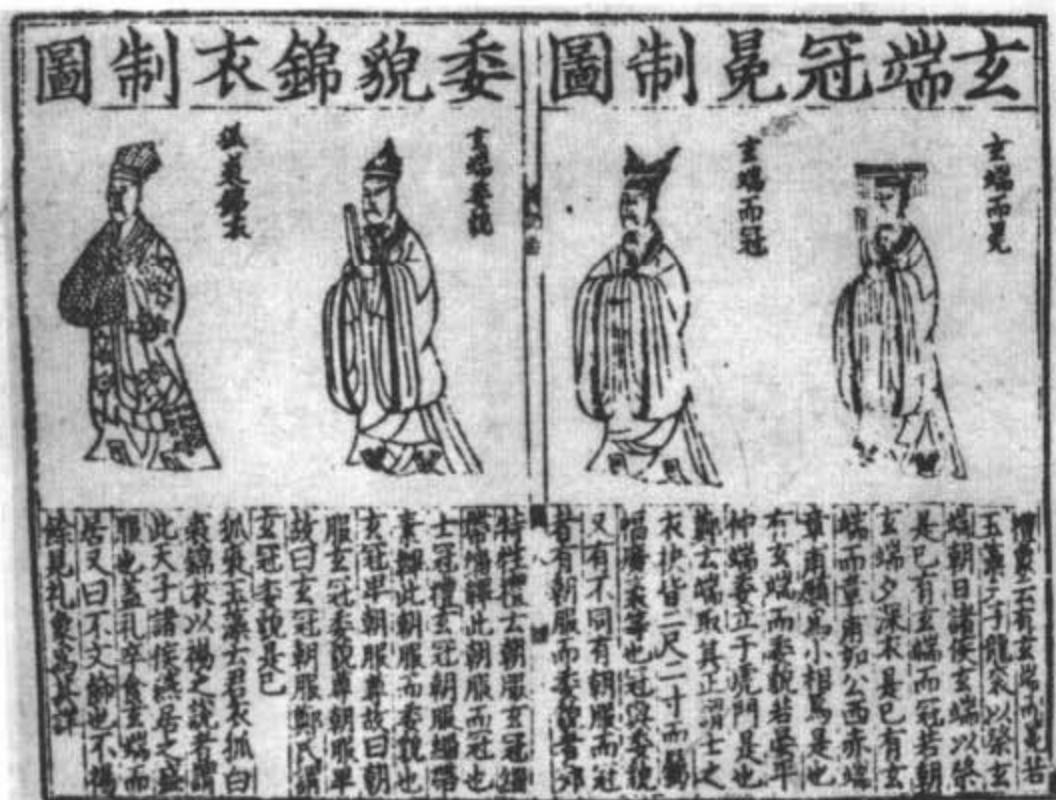 玄端冠冕制圖
玄端而冕
玄端而冠
禮象云有玄端而冕若
玉藻天子龍衮以祭玄
端朝日諸侯玄端以祭
是已有玄端而冠若朝
玄端夕深衣是已有玄
端而章甫如公西赤端
章甫願為小相焉是也
有玄端而委貌若晏平
仲端委立于虎門是也
鄭云端取其正謂士之
衣袂皆二尺二寸而屬
幅廣袤等也冠與委貌
又有不同有朝服而冠
者有朝服而委貌者
委貌錦衣制圖
玄端委貌
狐裘錦衣
特牲禮云朝服玄冠緇
帶緇韠此朝服而冠也
士冠禮玄冠朝服緇帶
素韠此朝服而委貌也
玄冠卑朝服尊故曰朝
服玄冠委貌尊朝服卑
故曰玄冠朝服鄭氏謂
玄冠委貌是已
狐裘玉藻云君衣狐白
裘錦衣以裼之說者謂
此天子諸侯燕居之盛
服也蓋孔卒食玄端而
居又曰不文飾也不裼
餘見礼象寫其詳